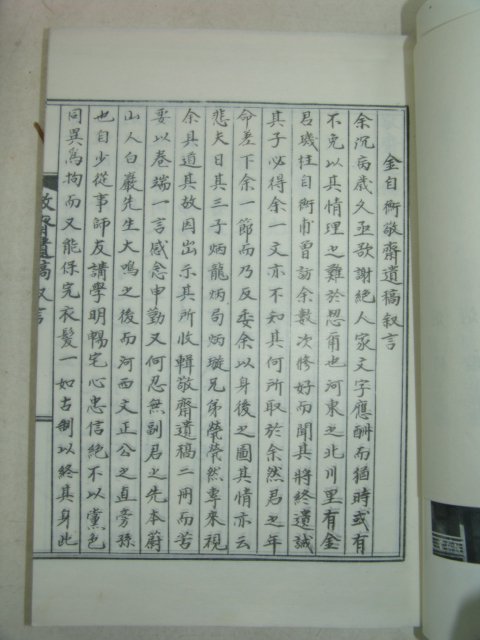 金自衕敬齋遺稿叙言
余沉病歲久亟欲謝絶人家文字應酬而猶時或有
不免以其情理之難於恝甭也河東之北川里有金
君璣柱自衕甫曾訪余數次修好而聞其將終遺誡
其子必得余一文亦不知其何所取於余然君之年
命差下余一節而乃反委余以身後之圖其情亦云
悲夫日其三子炳龍炳局炳璇兄弟煢煢然專來視
余具道其故因出示其所收輯敬齋遺稿二冊而苦
要以卷端一言感念申勤又何忍無訓君之先本蔚
山人白巖先生大鳴之後而河西文正公之直旁孫
也自少從事師友講學明暢宅心忠信絶不以黨色
同異爲拘而又能保完衣髮一如古制以終其身此
敬齋遺稿叙言